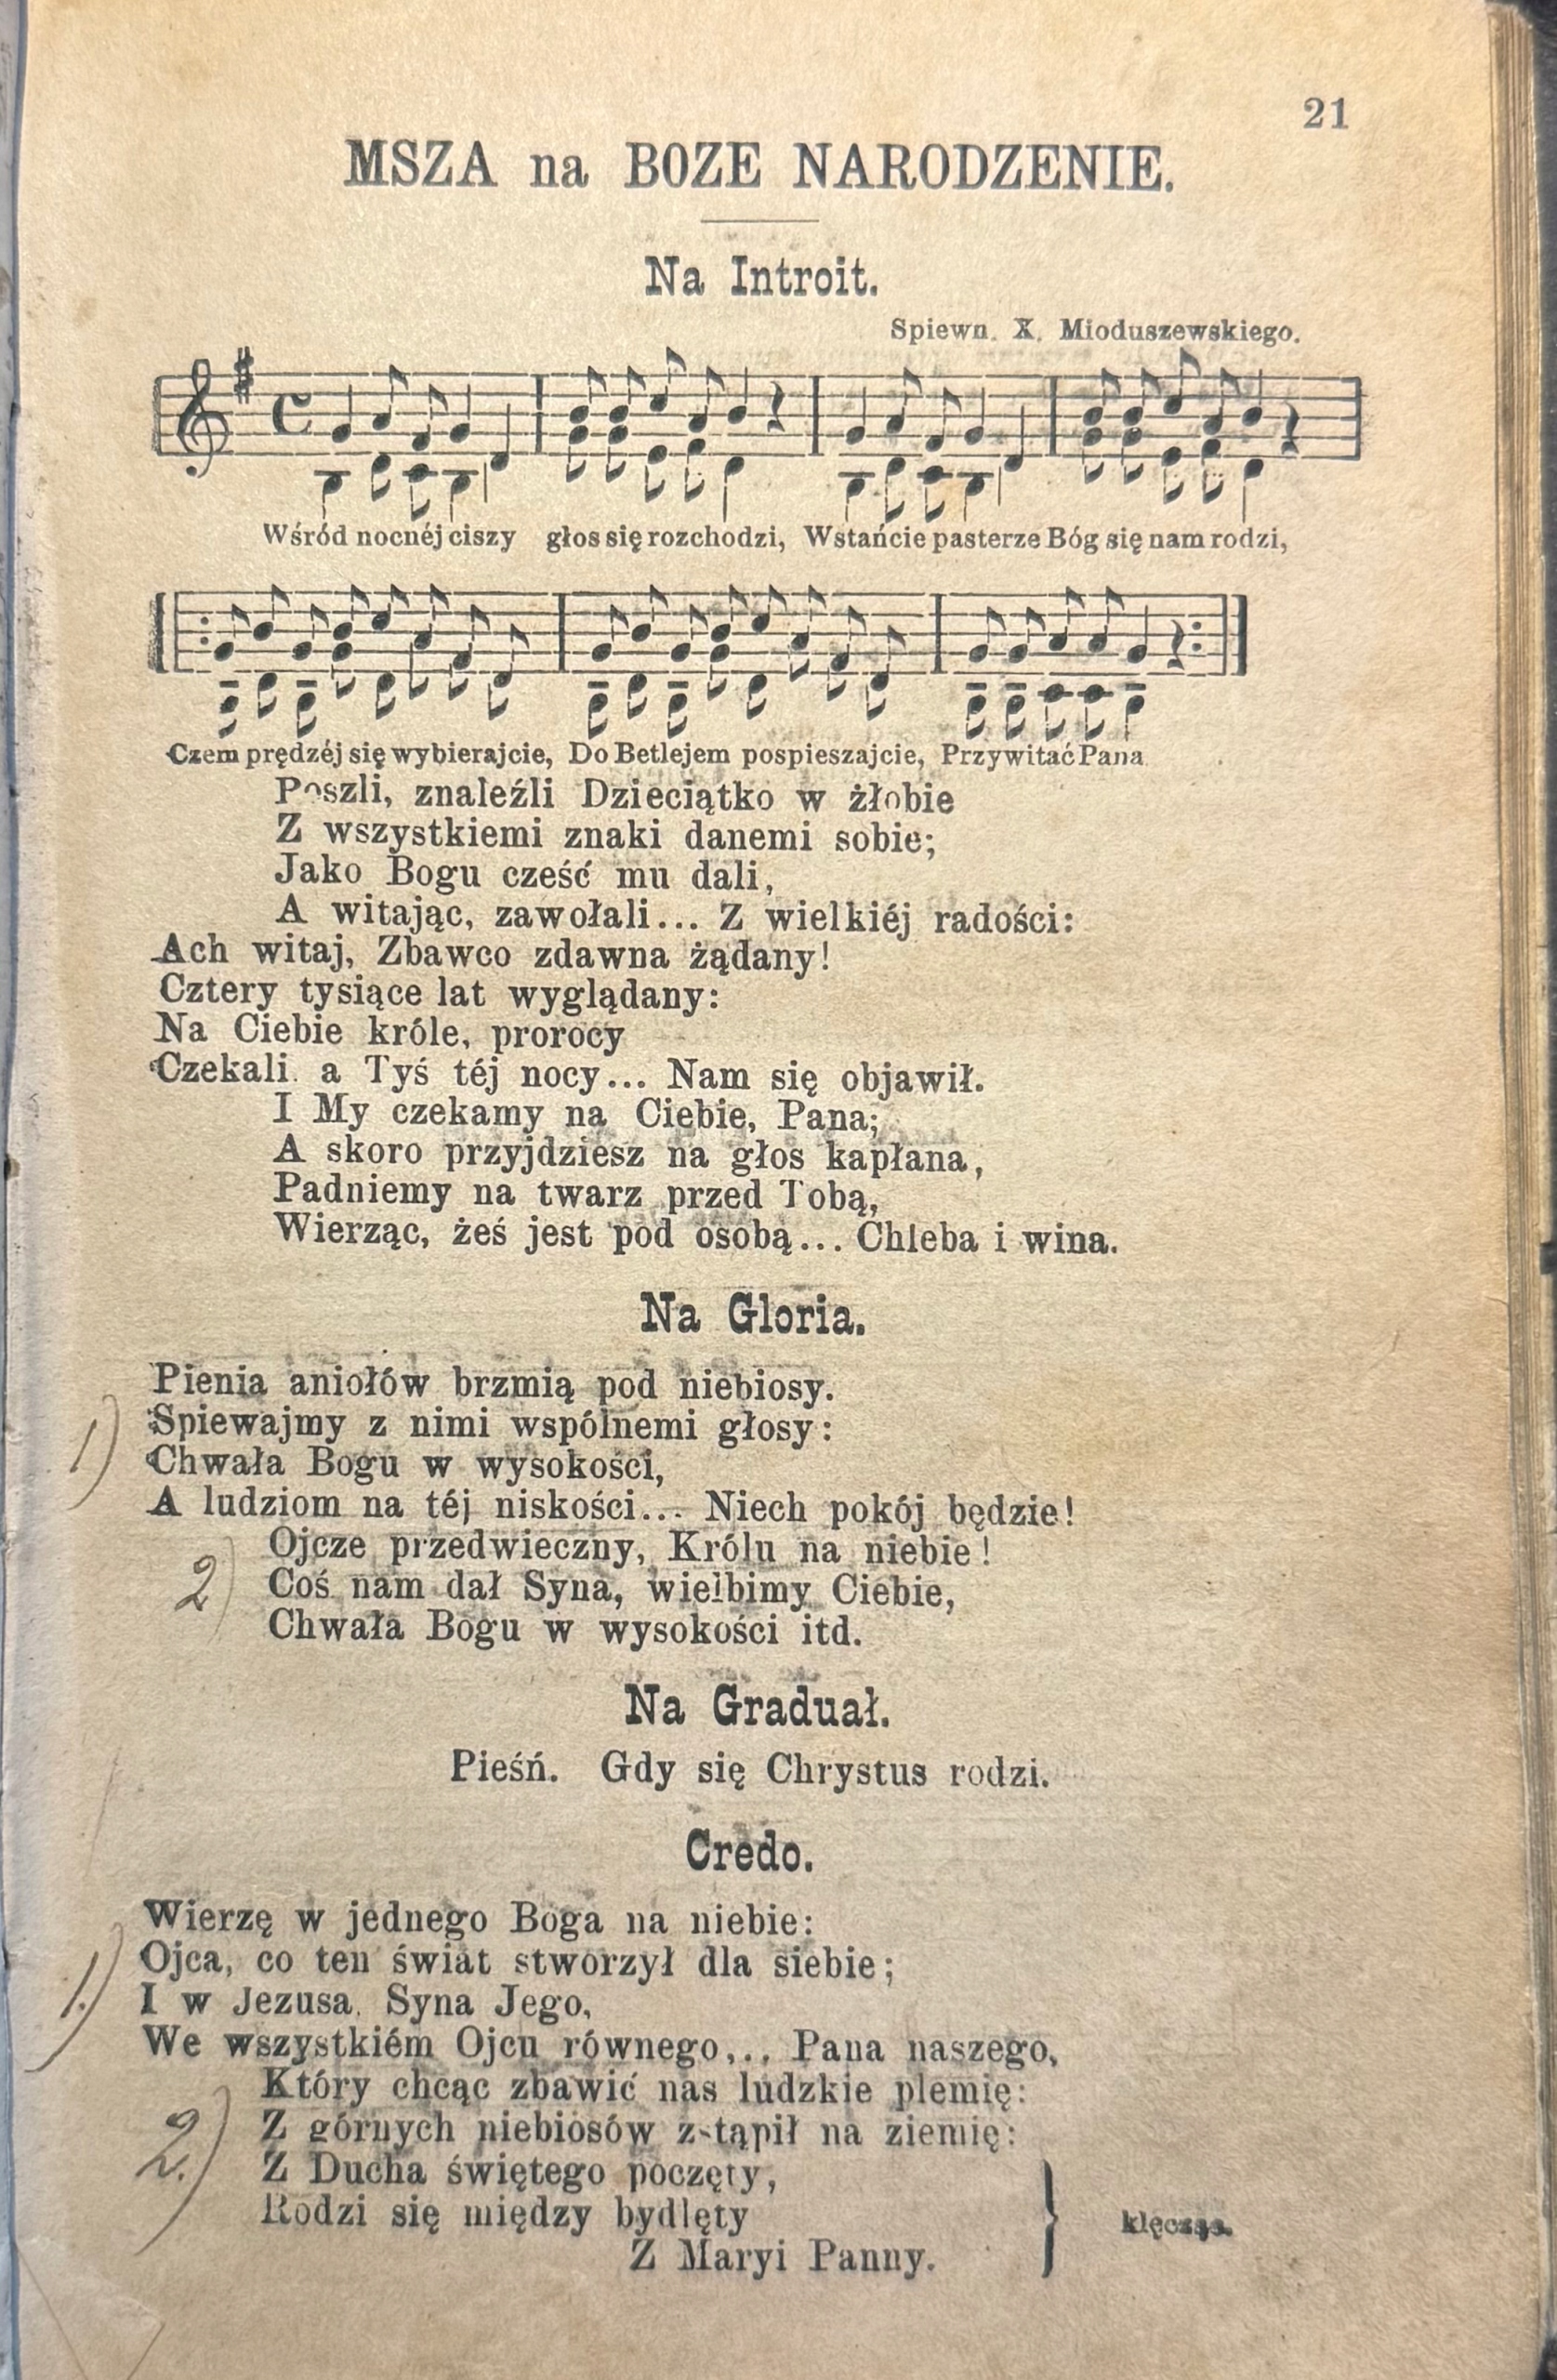 21
MSZA na BOZE NARODZENIE.
Na Introit.
Spiewn. X. Mioduszewskiego.
Wśród nocnéj ciszy głos się rozchodzi, Wstańcie pasterze Bóg się nam rodzi,
Czem prędzéj się wybierajcie, Do Betlejem pospieszajcie, Przywitać Pana
Poszli, znaleźli Dzieciątko w żłobie
Z wszystkiemi znaki danemi sobie;
Jako Bogu cześć mu dali,
A witając, zawołali... Z wielkiéj radości:
Ach witaj, Zbawco zdawna żądany!
Cztery tysiące lat wyglądany:
Na Ciebie króle, prorocy
Czekali. a Tyś téj nocy... Nam się objawił.
I My czekamy na Ciebie, Pana;
A skoro przyjdziesz na głos kapłana,
Padniemy na twarz przed Tobą,
Wierząc, żeś jest pod osobą... Chleba i wina.
Na Gloria.
Pienia aniołów brzmią pod niebiosy.
1) Spiewajmy z nimi wspólnemi głosy:
Chwała Bogu w wysokości,
A ludziom na téj niskości... Niech pokój będzie!
Ojcze przedwieczny, Królu na niebie!
2) Coś nam dał Syna, wielbimy Ciebie,
Chwała Bogu w wysokości itd.
Na Graduał.
Pieśń. Gdy się Chrystus rodzi.
Credo.
Wierzę w jednego Boga na niebie:
Ojca, co ten świat stworzył dla siebie;
1.) I w Jezusa. Syna Jego,
We wszystkiém Ojcu równego... Pana naszego,
Który chcąc zbawić nas ludzkie plemię:
2.) Z górnych niebiosów zstąpił na ziemię:
Z Ducha świętego poczęty,
Rodzi się między bydlęty
Z Maryi Panny.
} klęcząc.